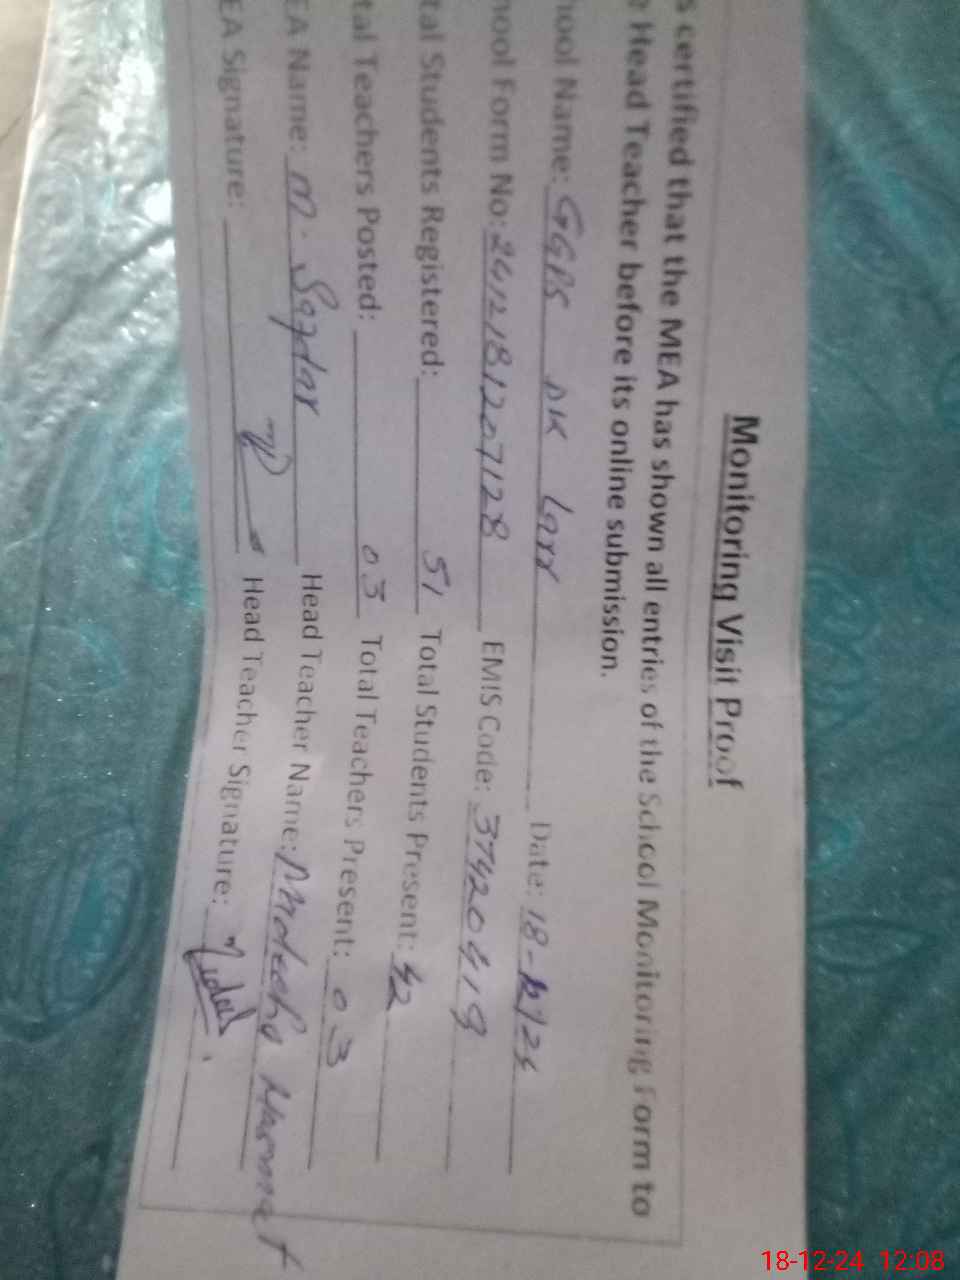 Monitoring Visit Proof
s certified that the MEA has shown all entries of the School Monitoring Form to
Head Teacher before its online submission.
hool Name: GGPS DK Larr Date: 18-12/24
hool Form No: 24121812071128 EMIS Code: 37420419
tal Students Registered: 51 Total Students Present: 42
tal Teachers Posted: 03 Total Teachers Present: 03
EA Name: M. Safdar Head Teacher Name:
EA Signature: Head Teacher Signature:
18-12-24 12:08